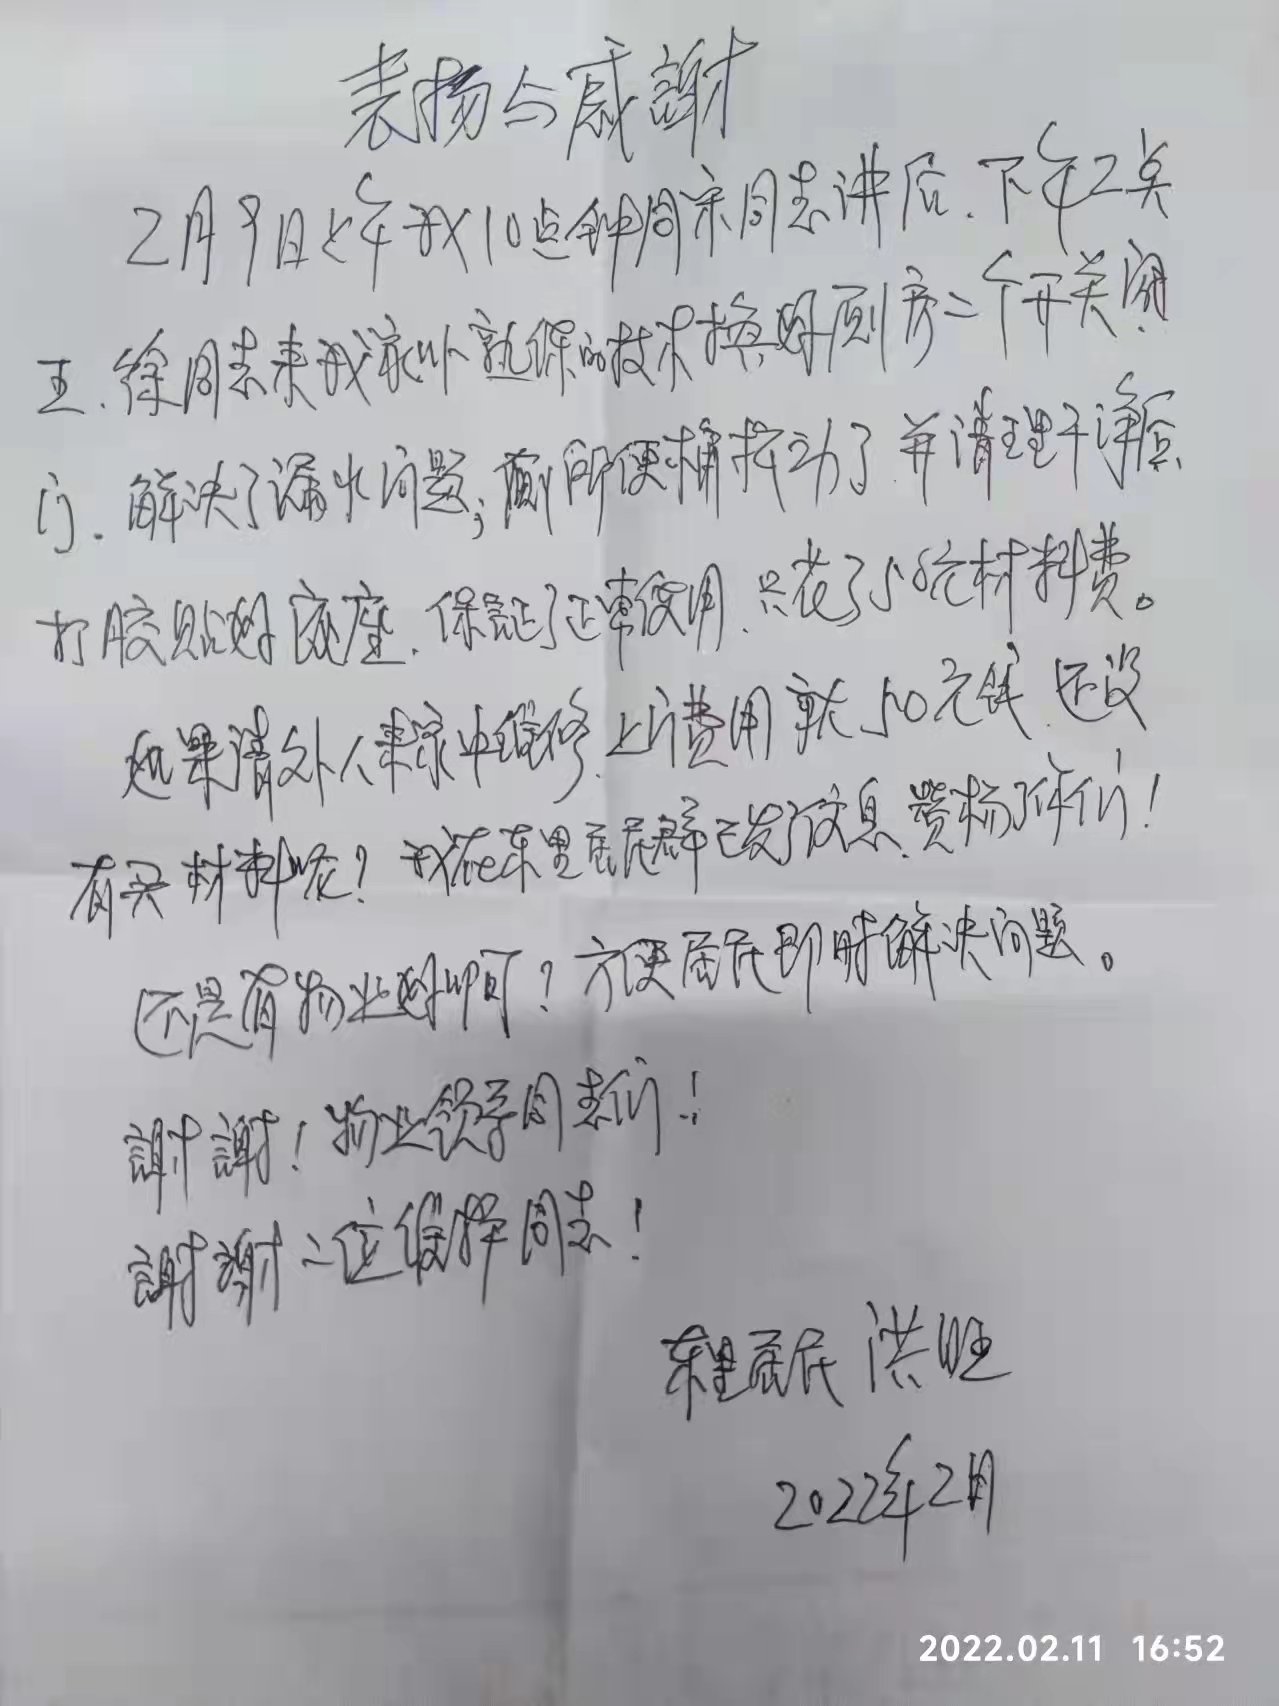 表扬与感謝
2月9日上午我10点钟同宋同志讲后、下午2点
王、徐同志来我家以熟练的技术换好厕房二个开关阀
门、解决了漏水问题；厕所便桶拆动了、并清理干净后
打胶贴好底座、保証了正常使用、只花了50元材料费。
如果请外人来家中维修、上门费用就50元钱、还没
有买材料呢？我在东里居民群已发了信息、赞扬了你们！
还是有物业好啊！方便居民即时解决问题。
謝謝！物业领导同志们！
謝謝二位维修同志！
东里居民 洪旺
2022年2月
2022.02.11 16:52